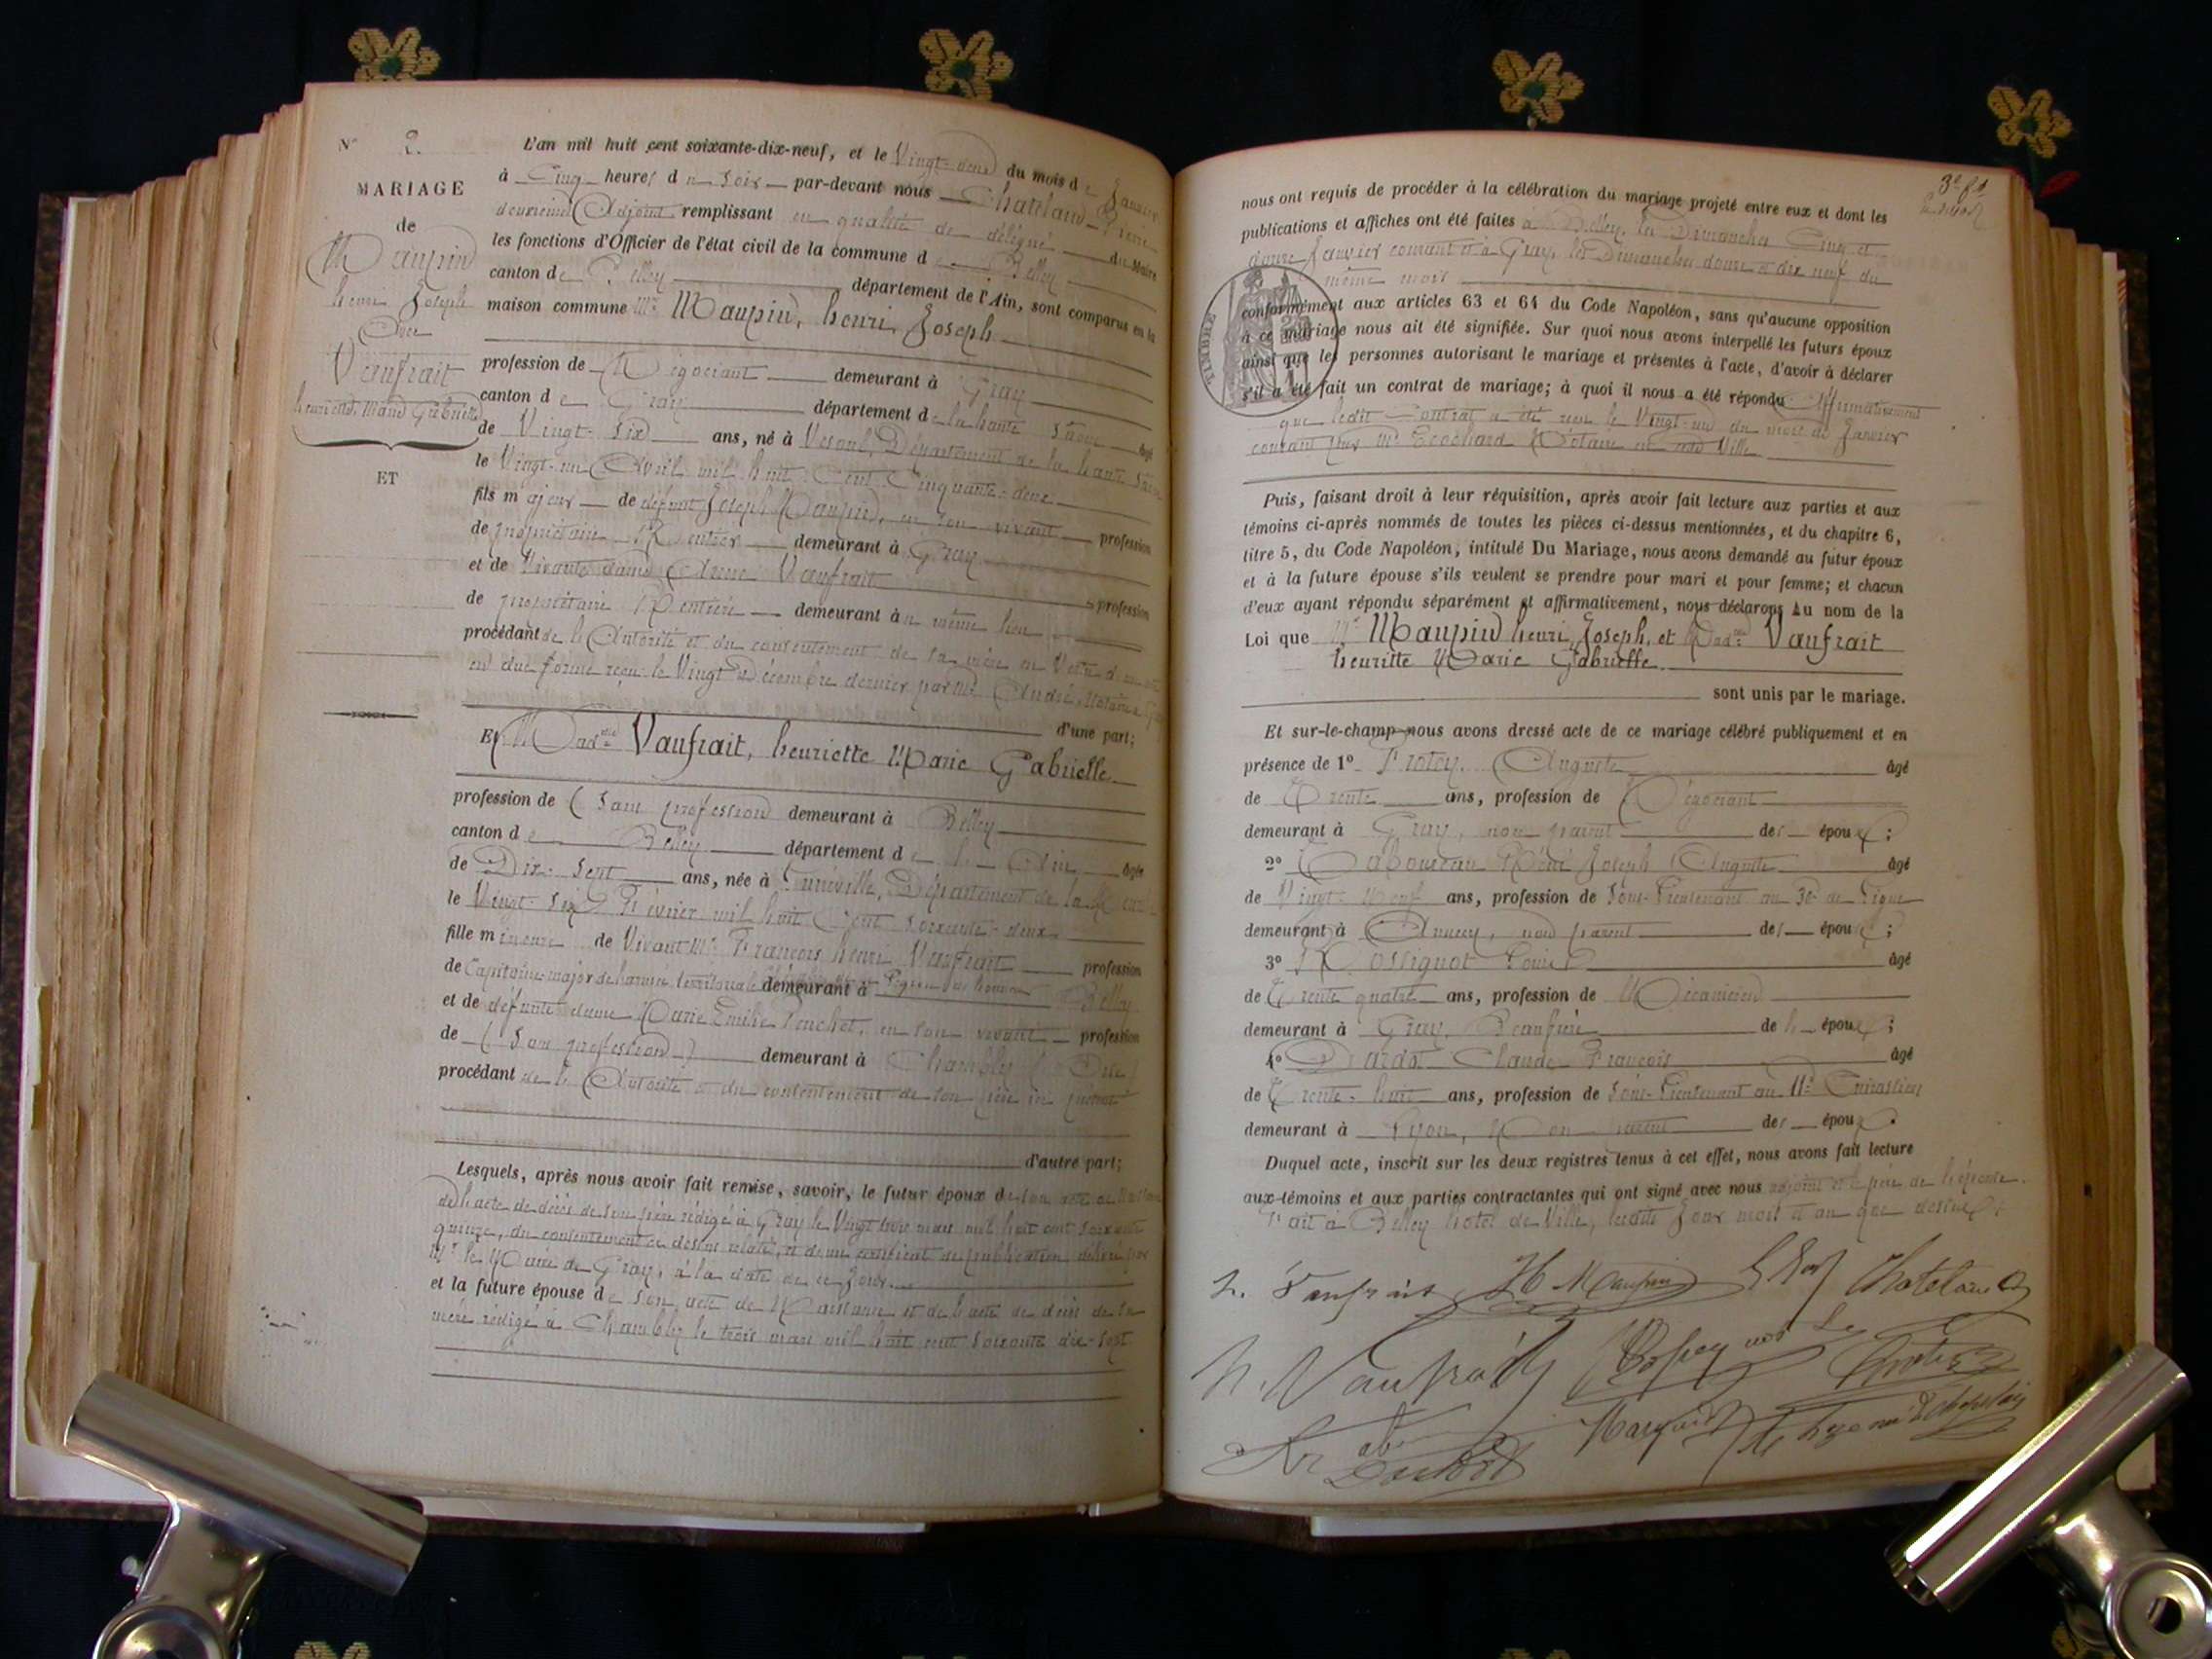 N° 2.
MARIAGE
de
Maupin
henri Joseph
Avec
Vaufrait
henriette Marie Gabrielle
ET
L'an mil huit cent soixante-dix-neuf, et le Vingt-deux du mois de Janvier
à Cinq heures du soir par-devant nous Chatelain Pierre
deuxième Adjoint remplissant en qualité de délégué du Maire
les fonctions d'Officier de l'état civil de la commune de Belley
canton de Belley département de l'Ain, sont comparus en la
maison commune Mr Maupin, henri, Joseph
profession de Négociant demeurant à Gray
canton de Gray département de la haute Saône âgé
de Vingt-six ans, né à Vesoul, Département de la haute Saône
le Vingt-un Avril mil huit Cent Cinquante-deux
fils majeur de défunt Joseph Maupin, en son vivant profession
de propriétaire Rentier demeurant à Gray
et de Vivante dame Vaufrait profession
de propriétaire Rentière demeurant au même lieu
procédant de l'Autorité et du consentement de sa mère en Vertu d'un acte
en due forme reçu le Vingt Décembre dernier par Me André, Notaire à Gray
d'une part;
Et Madlle Vaufrait, henriette Marie Gabrielle
profession de (sans profession demeurant à Belley
canton de Belley département de l'Ain âgée
de Dix-Sept ans, née à Lunéville, Département de la Meurthe
le Vingt-six Février mil huit Cent soixante-deux
fille mineure de Vivant Mr François henri Vaufrait profession
de Capitaine-major de l'armée territoriale demeurant à Belley
et de défunte dame Marie Emilie Ponchet, en son vivant profession
de (San profession) demeurant à Chambly (Oise)
procédant de l'Autorité et du consentement de son père ici présent
d'autre part;
Lesquels, après nous avoir fait remise, savoir, le futur époux de son acte de Naissance
de l'acte de décès de son père rédigé à Gray le Vingt trois mars mil huit cent soixante
quinze, du consentement ci dessus relaté, et d'un certificat de publication délivré par
Mr le Maire de Gray, à la date de ce Jour.
et la future épouse de son acte de Naissance et de l'acte de décès de sa
mère rédigé à Chambly le trois mars mil huit cent soixante dix-sept
3e ft
nous ont requis de procéder à la célébration du mariage projeté entre eux et dont les
publications et affiches ont été faites à Belley, les Dimanches Cinq et
douze Janvier courant et à Gray, les Dimanches douze et dix neuf du
même mois
TIMBRE
conformément aux articles 63 et 64 du Code Napoléon, sans qu'aucune opposition
à ce mariage nous ait été signifiée. Sur quoi nous avons interpellé les futurs époux
ainsi que les personnes autorisant le mariage et présentes à l'acte, d'avoir à déclarer
s'il a été fait un contrat de mariage; à quoi il nous a été répondu Affirmativement
que ledit Contrat a été reçu le Vingt-un du mois de Janvier
courant par Me Ecochard Notaire en Ville
Puis, faisant droit à leur réquisition, après avoir fait lecture aux parties et aux
témoins ci-après nommés de toutes les pièces ci-dessus mentionnées, et du chapitre 6,
titre 5, du Code Napoléon, intitulé Du Mariage, nous avons demandé au futur époux
et à la future épouse s'ils veulent se prendre pour mari et pour femme; et chacun
d'eux ayant répondu séparément et affirmativement, nous déclarons Au nom de la
Loi que Mr Maupin henri, Joseph, et Madlle Vaufrait
henriette Marie Gabrielle
sont unis par le mariage.
Et sur-le-champ nous avons dressé acte de ce mariage célébré publiquement et en
présence de 1° Frotey, Auguste âgé
de Trente ans, profession de Négociant
demeurant à Gray, non parent des époux;
2° Taboureau Joseph Auguste âgé
de Vingt-Neuf ans, profession de Sous-Lieutenant au 30e de Ligne
demeurant à Annecy, non parent des époux;
3° Rossignol Louis âgé
de Trente quatre ans, profession de Mécanicien
demeurant à Gray, Beaufrère de l'époux;
4° Dardot Claude François âgé
de Trente-huit ans, profession de Sous-Lieutenant au 11e Cuirassiers
demeurant à Lyon, Non parent des époux.
Duquel acte, inscrit sur les deux registres tenus à cet effet, nous avons fait lecture
aux témoins et aux parties contractantes qui ont signé avec nous adjoint et le père de l'épouse.
Fait à Belley hotel de Ville, lesdits Jour mois et an que dessus.
h. Vaufrait H Maupin Chatelain
h. Vaufrait